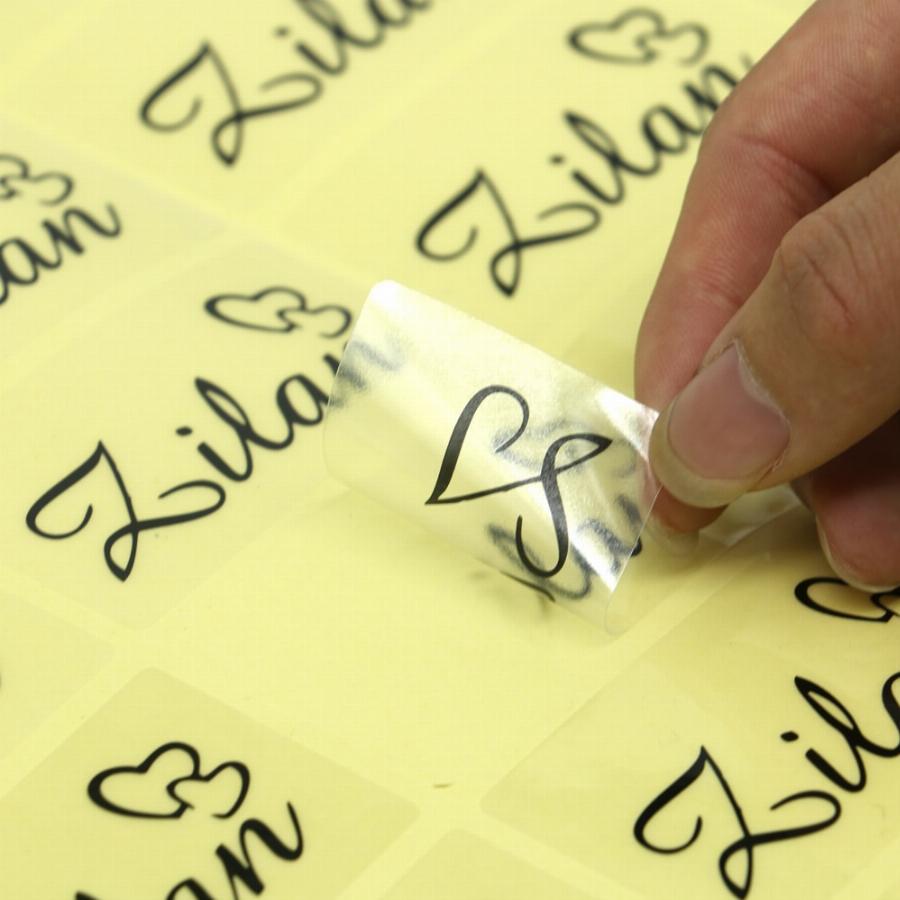 Zila
Zilan
an
Zilan
Zil
an